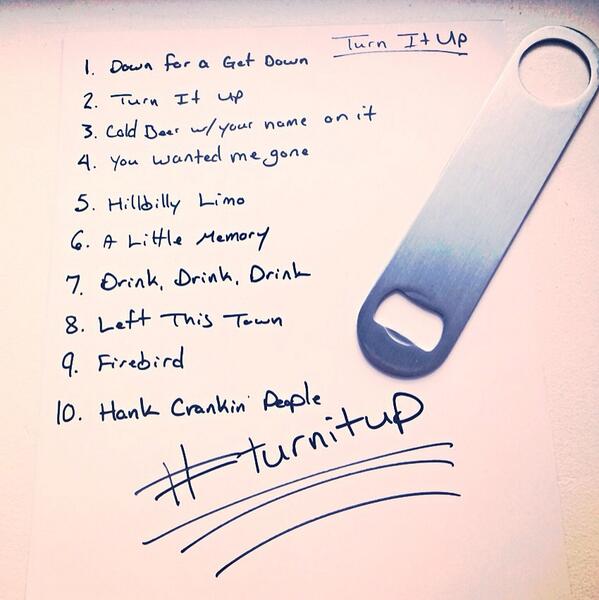 Turn It Up
1. Down for a Get Down
2. Turn It up
3. Cold Beer w/your name on it
4. You wanted me gone
5. Hillbilly Limo
6. A Little Memory
7. Drink, Drink, Drink
8. Left This Town
9. Firebird
10. Hank Crankin' People
#turnitup